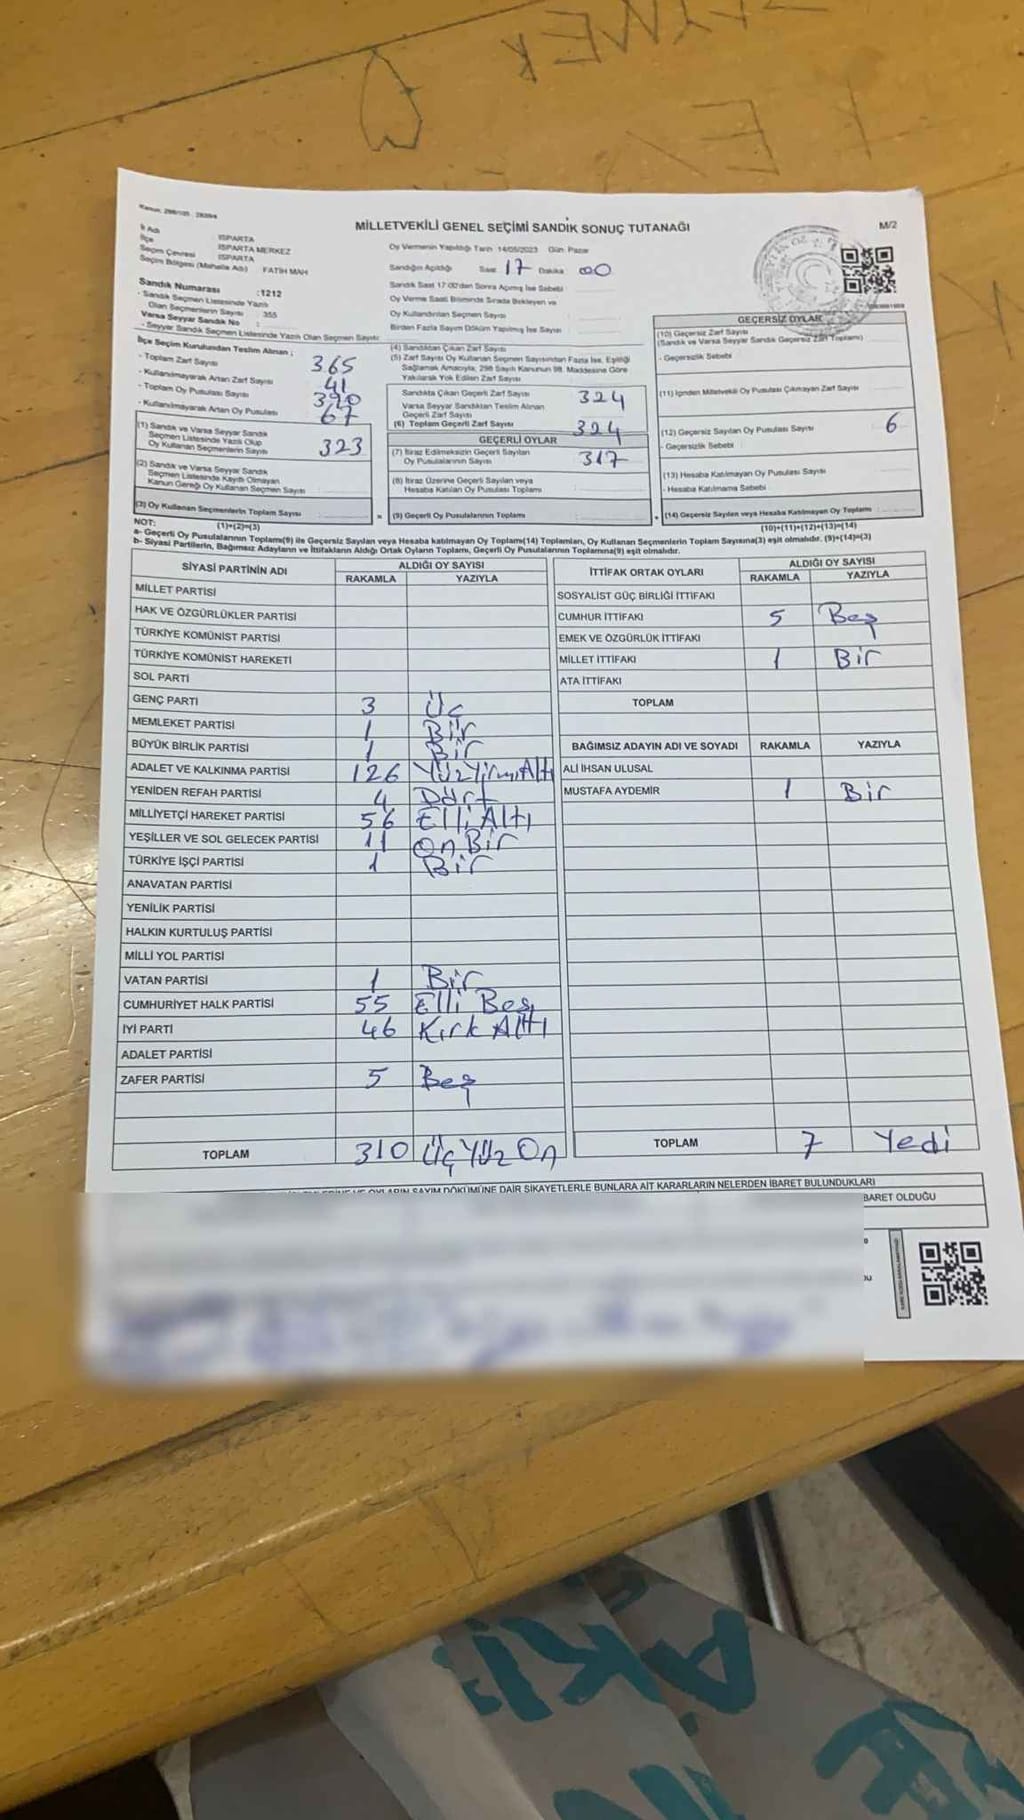 Kanun: 298/105 - 2839/4
MİLLETVEKİLİ GENEL SEÇİMİ SANDIK SONUÇ TUTANAĞI
M/2
İl Adı : ISPARTA
İlçe : ISPARTA MERKEZ
Seçim Çevresi : ISPARTA
Seçim Bölgesi (Mahalle Adı) FATİH MAH
Sandık Numarası :1212
- Sandık Seçmen Listesinde Yazılı
Olan Seçmenlerin Sayısı : 355
Varsa Seyyar Sandık No :
- Seyyar Sandık Seçmen Listesinde Yazılı Olan Seçmen Sayısı:
İlçe Seçim Kurulundan Teslim Alınan ;
- Toplam Zarf Sayısı 365
- Kullanılmayarak Artan Zarf Sayısı 41
- Toplam Oy Pusulası Sayısı 390
- Kullanılmayarak Artan Oy Pusulası 67
(1) Sandık ve Varsa Seyyar Sandık
Seçmen Listesinde Yazılı Olup
Oy Kullanan Seçmenlerin Sayısı 323
(2) Sandık ve Varsa Seyyar Sandık
Seçmen Listesinde Kayıtlı Olmayan
Kanun Gereği Oy Kullanan Seçmen Sayısı
(3) Oy Kullanan Seçmenlerin Toplam Sayısı
(1)+(2)=(3)
Oy Vermenin Yapıldığı Tarih 14/05/2023 Gün: Pazar
Sandığın Açıldığı Saat 17 Dakika 00
Sandık Saat 17:00'dan Sonra Açılmış İse Sebebi
Oy Verme Saati Bitiminde Sırada Bekleyen ve
Oy Kullandırılan Seçmen Sayısı
Birden Fazla Sayım Döküm Yapılmış İse Sayısı
(4) Sandıktan Çıkan Zarf Sayısı
(5) Zarf Sayısı Oy Kullanan Seçmen Sayısından Fazla İse, Eşitliği
Sağlamak Amacıyla, 298 Sayılı Kanunun 98. Maddesine Göre
Yakılarak Yok Edilen Zarf Sayısı
Sandıkta Çıkan Geçerli Zarf Sayısı 324
Varsa Seyyar Sandıktan Teslim Alınan
Geçerli Zarf Sayısı
(6) Toplam Geçerli Zarf Sayısı 324
GEÇERLİ OYLAR
(7) İtiraz Edilmeksizin Geçerli Sayılan
Oy Pusulalarının Sayısı 317
(8) İtiraz Üzerine Geçerli Sayılan veya
Hesaba Katılan Oy Pusulası Toplamı
= (9) Geçerli Oy Pusulalarının Toplamı
GEÇERSİZ OYLAR
(10) Geçersiz Zarf Sayısı
(Sandık ve Varsa Seyyar Sandık Geçersiz Zarf Toplamı)
- Geçersizlik Sebebi
(11) İçinden Milletvekili Oy Pusulası Çıkmayan Zarf Sayısı
(12) Geçersiz Sayılan Oy Pusulası Sayısı 6
- Geçersizlik Sebebi
(13) Hesaba Katılmayan Oy Pusulası Sayısı
- Hesaba Katılmama Sebebi
+ (14) Geçersiz Sayılan veya Hesaba Katılmayan Oy Toplamı
(10)+(11)+(12)+(13)=(14)
NOT:
a- Geçerli Oy Pusulalarının Toplamı(9) ile Geçersiz Sayılan veya Hesaba katılmayan Oy Toplam(14) Toplamları, Oy Kullanan Seçmenlerin Toplam Sayısına(3) eşit olmalıdır. (9)+(14)=(3)
b- Siyasi Partilerin, Bağımsız Adayların ve İttifakların Aldığı Ortak Oyların Toplamı, Geçerli Oy Pusulalarının Toplamına(9) eşit olmalıdır.
SİYASİ PARTİNİN ADI ALDIĞI OY SAYISI
RAKAMLA YAZIYLA
MİLLET PARTİSİ
HAK VE ÖZGÜRLÜKLER PARTİSİ
TÜRKİYE KOMÜNİST PARTİSİ
TÜRKİYE KOMÜNİST HAREKETİ
SOL PARTİ
GENÇ PARTİ 3 Üç
MEMLEKET PARTİSİ 1 Bir
BÜYÜK BİRLİK PARTİSİ 1 Bir
ADALET VE KALKINMA PARTİSİ 126 YüzYirmiAltı
YENİDEN REFAH PARTİSİ 4 Dört
MİLLİYETÇİ HAREKET PARTİSİ 56 Elli Altı
YEŞİLLER VE SOL GELECEK PARTİSİ 11 On Bir
TÜRKİYE İŞÇİ PARTİSİ 1 Bir
ANAVATAN PARTİSİ
YENİLİK PARTİSİ
HALKIN KURTULUŞ PARTİSİ
MİLLİ YOL PARTİSİ
VATAN PARTİSİ 1 Bir
CUMHURİYET HALK PARTİSİ 55 Elli Beş
İYİ PARTİ 46 Kırk Altı
ADALET PARTİSİ
ZAFER PARTİSİ 5 Beş
TOPLAM 310 Üç Yüz On
İTTİFAK ORTAK OYLARI ALDIĞI OY SAYISI
RAKAMLA YAZIYLA
SOSYALİST GÜÇ BİRLİĞİ İTTİFAKI
CUMHUR İTTİFAKI 5 Beş
EMEK VE ÖZGÜRLÜK İTTİFAKI
MİLLET İTTİFAKI 1 Bir
ATA İTTİFAKI
TOPLAM
BAĞIMSIZ ADAYIN ADI VE SOYADI RAKAMLA YAZIYLA
ALİ İHSAN ULUSAL
MUSTAFA AYDEMİR 1 Bir
TOPLAM 7 Yedi
OYLARIN SAYIM DÖKÜMÜNE DAİR ŞİKAYETLERLE BUNLARA AİT KARARLARIN NELERDEN İBARET BULUNDUKLARI
BARET OLDUĞU